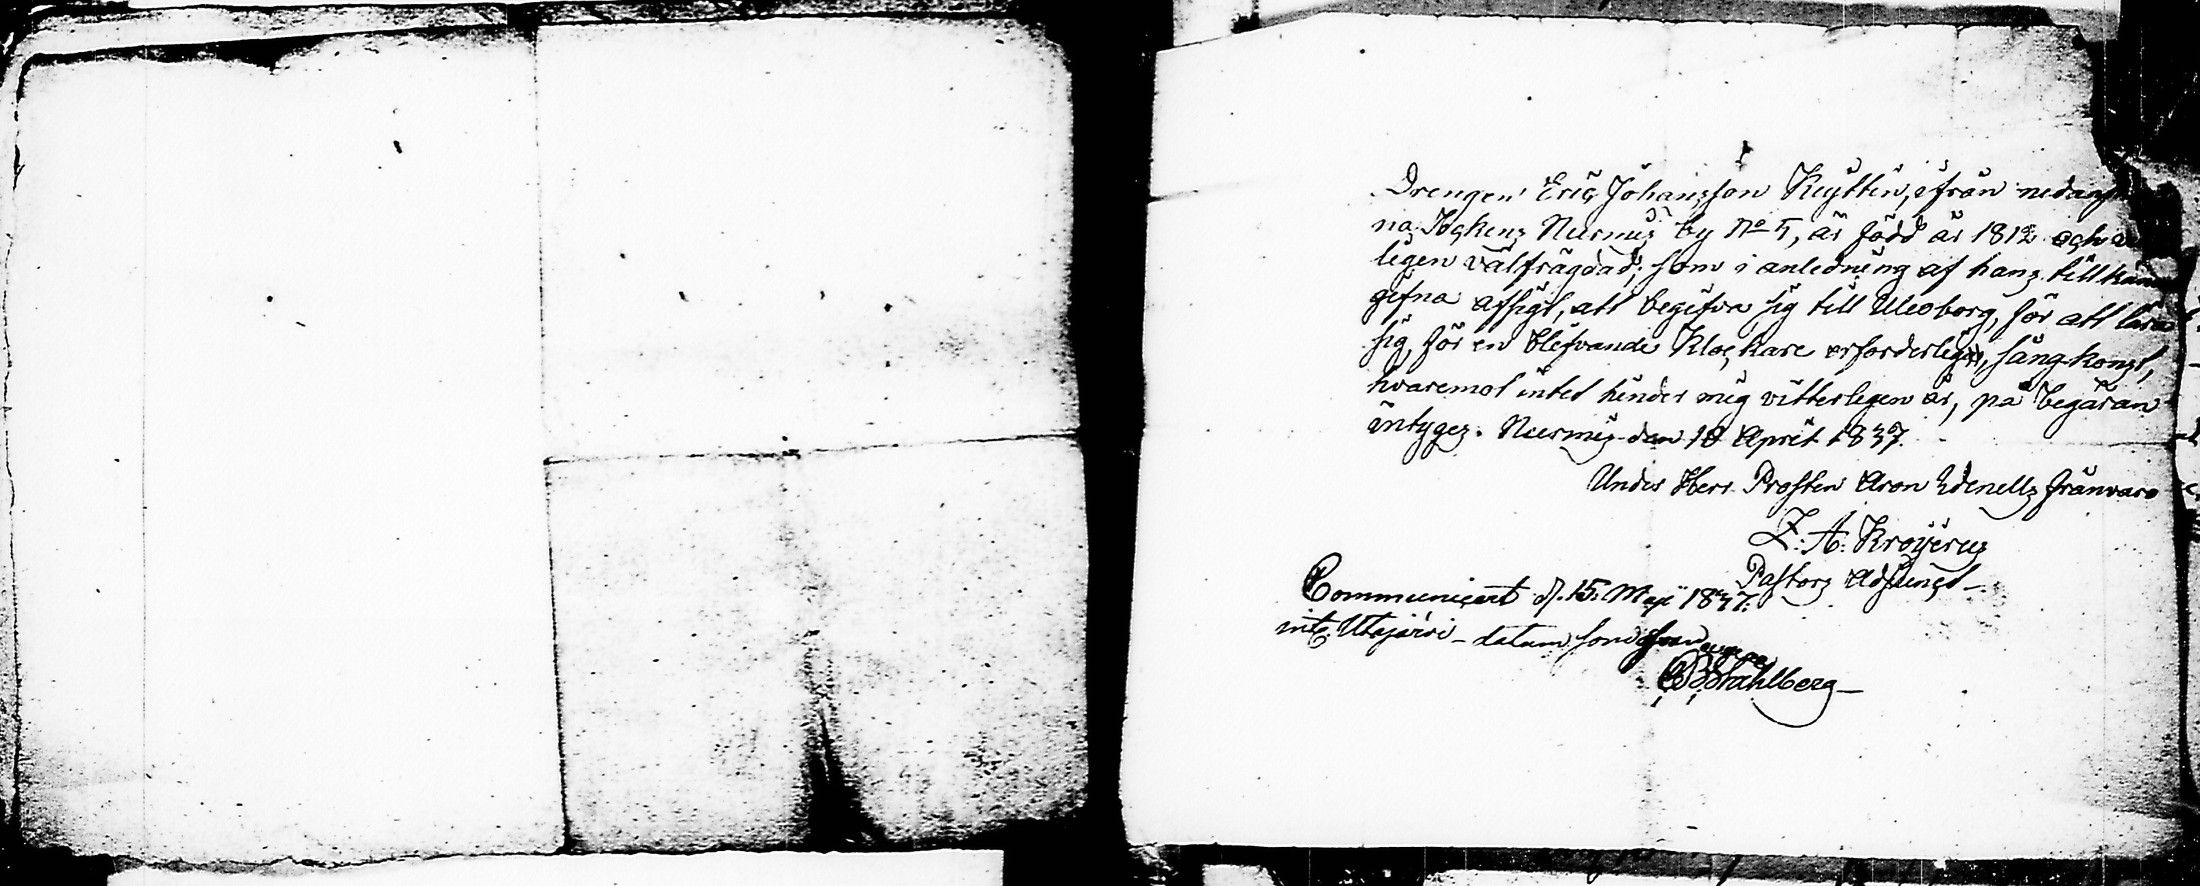 Drengen Eric Johansson Kyttin, ifrån
na Sockens Nurmis by No 5, är född år 1812 och
ligen välfrägdad; som i anledning af hans tillkänna
gifna afsigt, att begifva sig till Uleoborg, för att lära
sig, för en blifvande Klockare erforderlig, sångkonst,
hvaremot intet hinder mig vitterligen är, på begäran
intyges. Nurmis den 10 April 1837.
Under Herr Prosten Aron Idenells frånvaro
Z: A: Kroijerus
Pastors Adjunct
Communicert d. 15. Maji 1837.
Utajärvi datum som ofvan
Ståhlberg